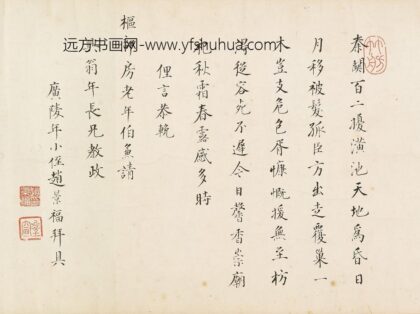 秦關百二擾潢池天地為昏日
月移被髮孤臣方出走覆巢一
木豈支危色厲慷慨援無至枋
從容死不遲今日馨香崇廟
祀秋霜春露感多時
俚言恭輓
樞 房老年伯兼請
翁年長兄教政
廣陵年小侄趙景福拜具
远方书画网-www.yfshuhua.com